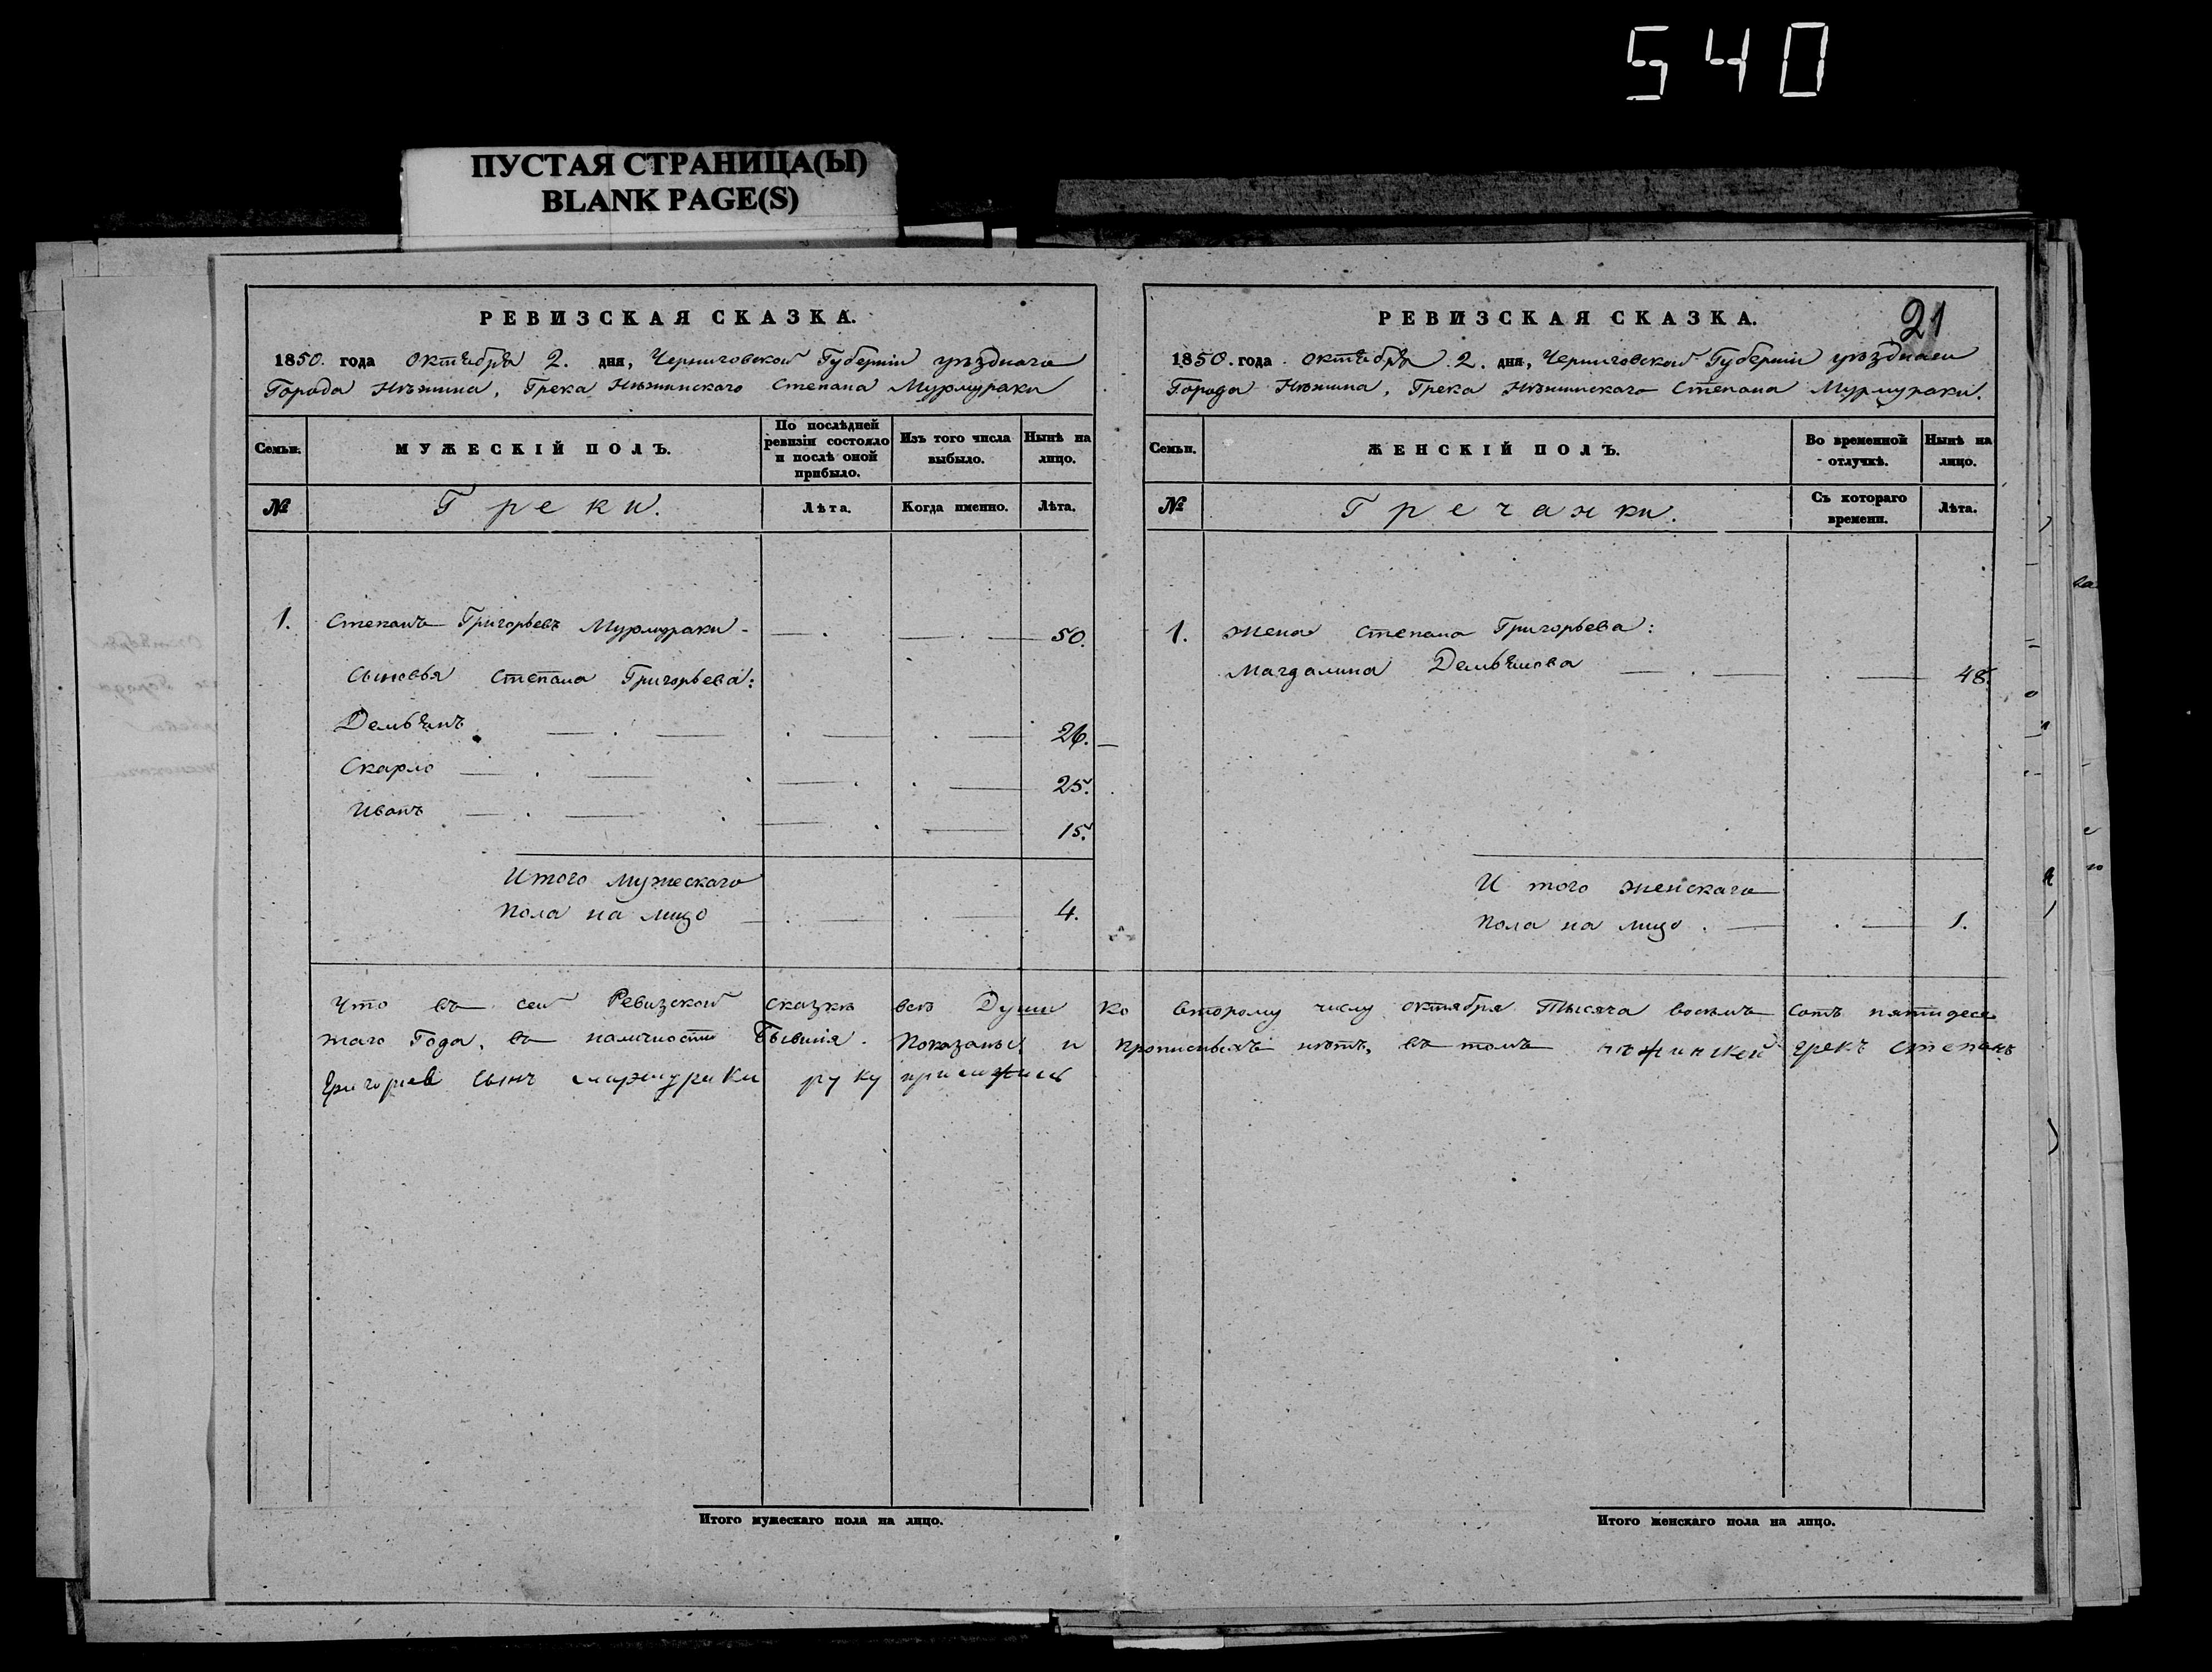 540
ПУСТАЯ СТРАНИЦА(Ы)
BLANK PAGE(S)
РЕВИЗСКАЯ СКАЗКА.
1850. года октября 2. дня, Черниговской Губерніи уѣзднаго
Города Нѣжина, Грека Нѣжинскаго Степана Мурмураки
Семьи. МУЖЕСКІЙ ПОЛЪ. По послѣдней ревизіи состояло и послѣ оной прибыло. Изъ того числа выбыло. Нынѣ на лицо.
№ Греки. Лѣта. Когда именно. Лѣта.
1. Степанъ Григорьевъ Мурмураки 50.
Сыновья Степана Григорьева:
Демьянъ 26.
Скарло 25.
Иванъ 15.
Итого мужескаго
пола на лицо 4.
РЕВИЗСКАЯ СКАЗКА.
21
1850. года октября 2. дня, Черниговской Губерніи уѣзднаго
Города Нѣжина, Грека Нѣжинскаго Степана Мурмураки.
Семьи. ЖЕНСКІЙ ПОЛЪ. Во временной отлучкѣ. Нынѣ на лицо.
№ Гречанки. Съ котораго времени. Лѣта.
1. Жена Степана Григорьева:
Магдалина Демьянова 48.
И того женскаго
пола на лицо 1.
Что въ сей Ревизской сказкѣ всѣ Души ко второму числу октября тысяча восемь сотъ пятидеся
таго Года, въ наличности бывшія. Показаны и прописныхъ нѣтъ, въ томъ нѣжинскей грекъ степанъ
григориев сынъ мармураки руку приложилъ
Итого мужескаго пола на лицо.
Итого женскаго пола на лицо.